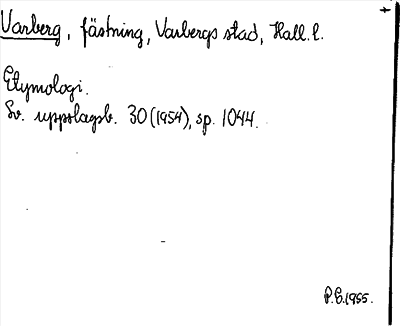 Varberg, fästning, Varbergs stad, Hall. l.
Etymologi.
Sv. uppslagsb. 30 (1954), sp. 1044.
P.E. 1955.